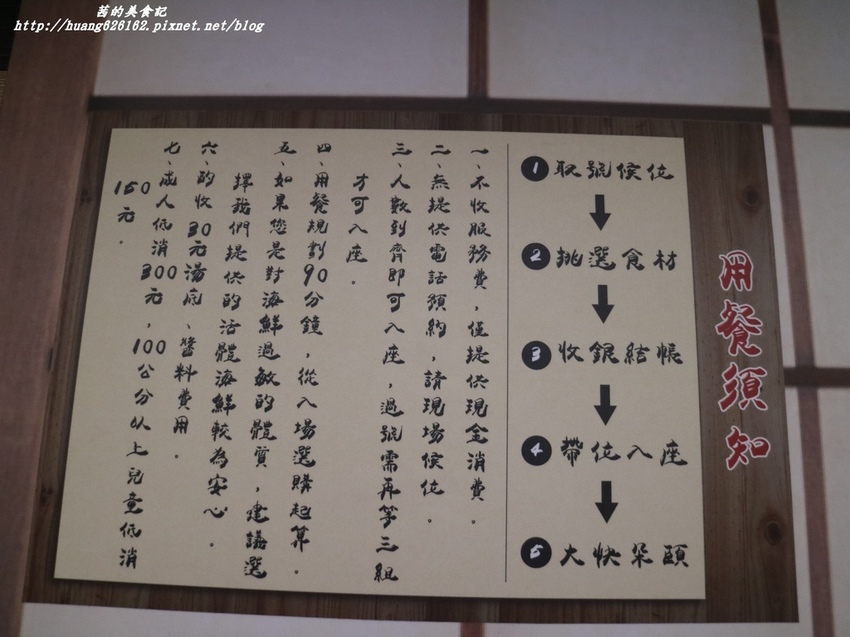 茜的美食記
http://huang626162.pixnet.net/blog
用餐須知
1 取號候位
2 挑選食材
3 收銀結帳
4 帶位入座
5 大快朵頤
一、不收服務費，僅提供現金消費。
二、無提供電話預約，請現場候位。
三、人數到齊即可入座，過號需再等三組
才可入座。
四、用餐規劃90分鐘，從入場選購起算。
五、如果您是對海鮮過敏的體質，建議選
擇我們提供的活體海鮮較為安心。
六、酌收30元湯底、醬料費用。
七、成人低消300元，100公分以上兒童低消
150元。